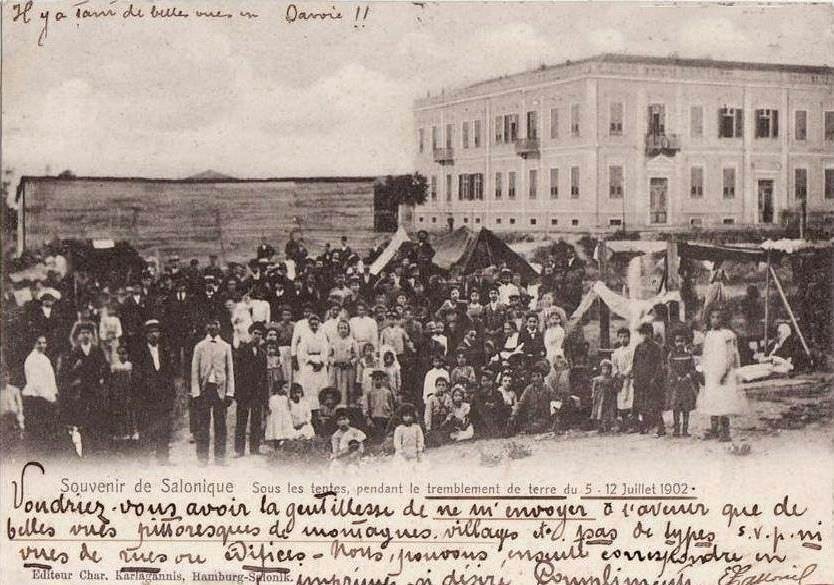 Il y a tant de belles vues en Savoie !!
Souvenir de Salonique Sous les tentes, pendant le tremblement de terre du 5 - 12 Juillet 1902.
Voudriez-vous avoir la gentillesse de ne m'envoyer à l'avenir que de
belles vues pittoresques de montagnes, villages etc. pas de types s.v.p. ni
vues de rues ou édifices - Nous pouvons ensuite correspondre en
Editeur Char. Karlagannis, Hamburg-Salonik.
si désiré Compliments